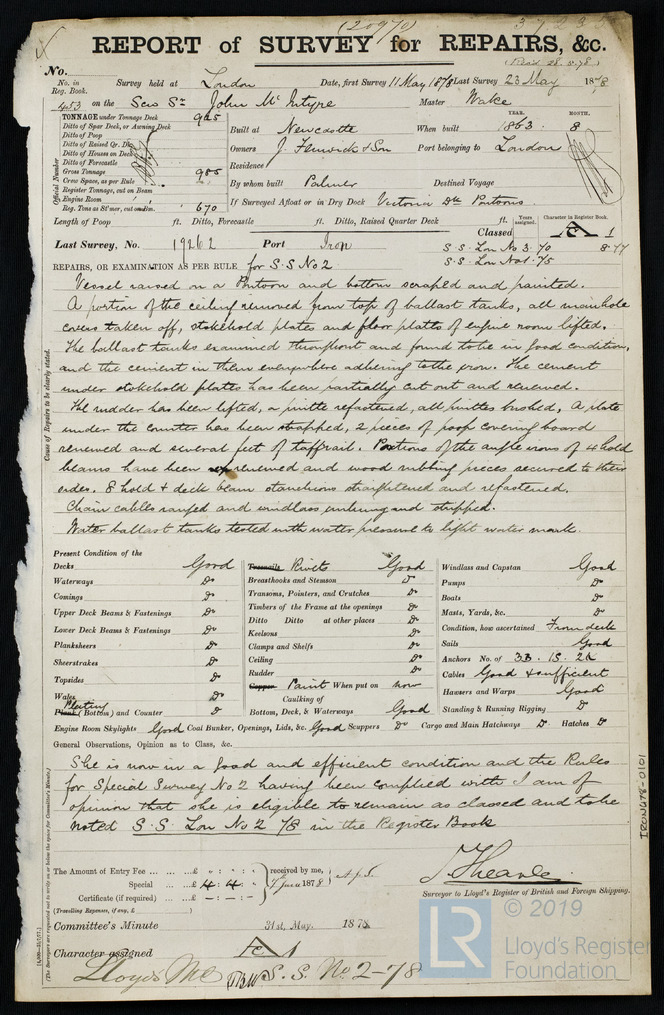 (20970)
REPORT of SURVEY for REPAIRS, &c.
(Recd 28.5.78.)
No.
No. in Reg. Book. Survey held at London Date, first Survey 11 May 1878 Last Survey 23 May 1878
453 on the Scw Sr John McIntyre Master Wake
TONNAGE under Tonnage Deck 985
Ditto of Spar Deck, or Awning Deck
Ditto of Poop
Ditto of Raised Qr. Dk.
Ditto of Houses on Deck
Ditto of Forecastle
Gross Tonnage 985
Crew Space, as per Rule
Register Tonnage, cut on Beam
Engine Room
Reg. Tons as St'mer, cut on Bm. 670
Official Number
Built at Newcastle When built YEAR. 1863 MONTH. 8
Owners J. Fenwick & Son Port belonging to London
Residence
By whom built Palmer Destined Voyage
If Surveyed Afloat or in Dry Dock Victoria Dk Pontoons
Length of Poop ft. Ditto, Forecastle ft. Ditto, Raised Quarter Deck ft.
Years assigned. Character in Register Book.
Classed A 1
Last Survey, No. 19262 Port Iron S.S. Lon No 3. 70 8-77
S.S. Lon No 1. 75
REPAIRS, OR EXAMINATION AS PER RULE for S.S No 2.
Vessel raised on a Pontoon and bottom scraped and painted.
A portion of the ceiling removed from top of ballast tanks, all manhole
covers taken off, stokehold plates and floor plates of engine room lifted.
The ballast tanks examined throughout and found to be in good condition,
and the cement in them everywhere adhering to the iron. The cement
under stokehold plates has been partially cut out and renewed.
The rudder has been lifted, a pintle refastened, all pintles bushed, A plate
under the counter has been strapped, 2 pieces of poop covering board
renewed and several feet of taffrail. Portions of the angle irons of 4 hold
beams have been renewed and wood rubbing pieces secured to their
sides. 8 hold & deck beam stanchions straightened and refastened.
Chain cables ranged and windlass unhung and stripped.
Water ballast tanks tested with water pressure to light water mark.
Cause of Repairs to be clearly stated.
Present Condition of the
Decks Good
Waterways Do
Comings Do
Upper Deck Beams & Fastenings Do
Lower Deck Beams & Fastenings Do
Planksheers Do
Sheerstrakes Do
Topsides Do
Wales Do
Plank Plating (Bottom) and Counter Do
Treenails Rivets Good
Breasthooks and Stemson Do
Transoms, Pointers, and Crutches Do
Timbers of the Frame at the openings Do
Ditto Ditto at other places Do
Keelsons Do
Clamps and Shelfs Do
Ceiling Do
Rudder Do
Copper Paint When put on now
Caulking of
Bottom, Deck, & Waterways Good
Windlass and Capstan Good
Pumps Do
Boats Do
Masts, Yards, &c. Do
Condition, how ascertained From deck
Sails Good
Anchors No. of 3B. 1S. 2K
Cables Good & sufficient
Hawsers and Warps Good
Standing & Running Rigging Do
Engine Room Skylights Good Coal Bunker, Openings, Lids, &c. Good Scuppers Do Cargo and Main Hatchways Do Hatches Do
General Observations, Opinion as to Class, &c.
She is now in a good and efficient condition and the Rules
for Special Survey No 2 having been complied with I am of
opinion that she is eligible to remain as classed and to be
noted S.S. Lon No 2 78 in the Register Book
The Amount of Entry Fee ... £ - : - : - received by me,
Special ... £ 4 : 4 : - 7 June 1878
Certificate (if required) ... £ - : - : -
(Travelling Expenses, if any, £ )
Surveyor to Lloyd's Register of British and Foreign Shipping.
Committee's Minute 31st May 1878
Character assigned A 1
Lloyds MC S.S. No 2-78
IRON678-0101
LR
© 2019
Lloyd's Register
Foundation